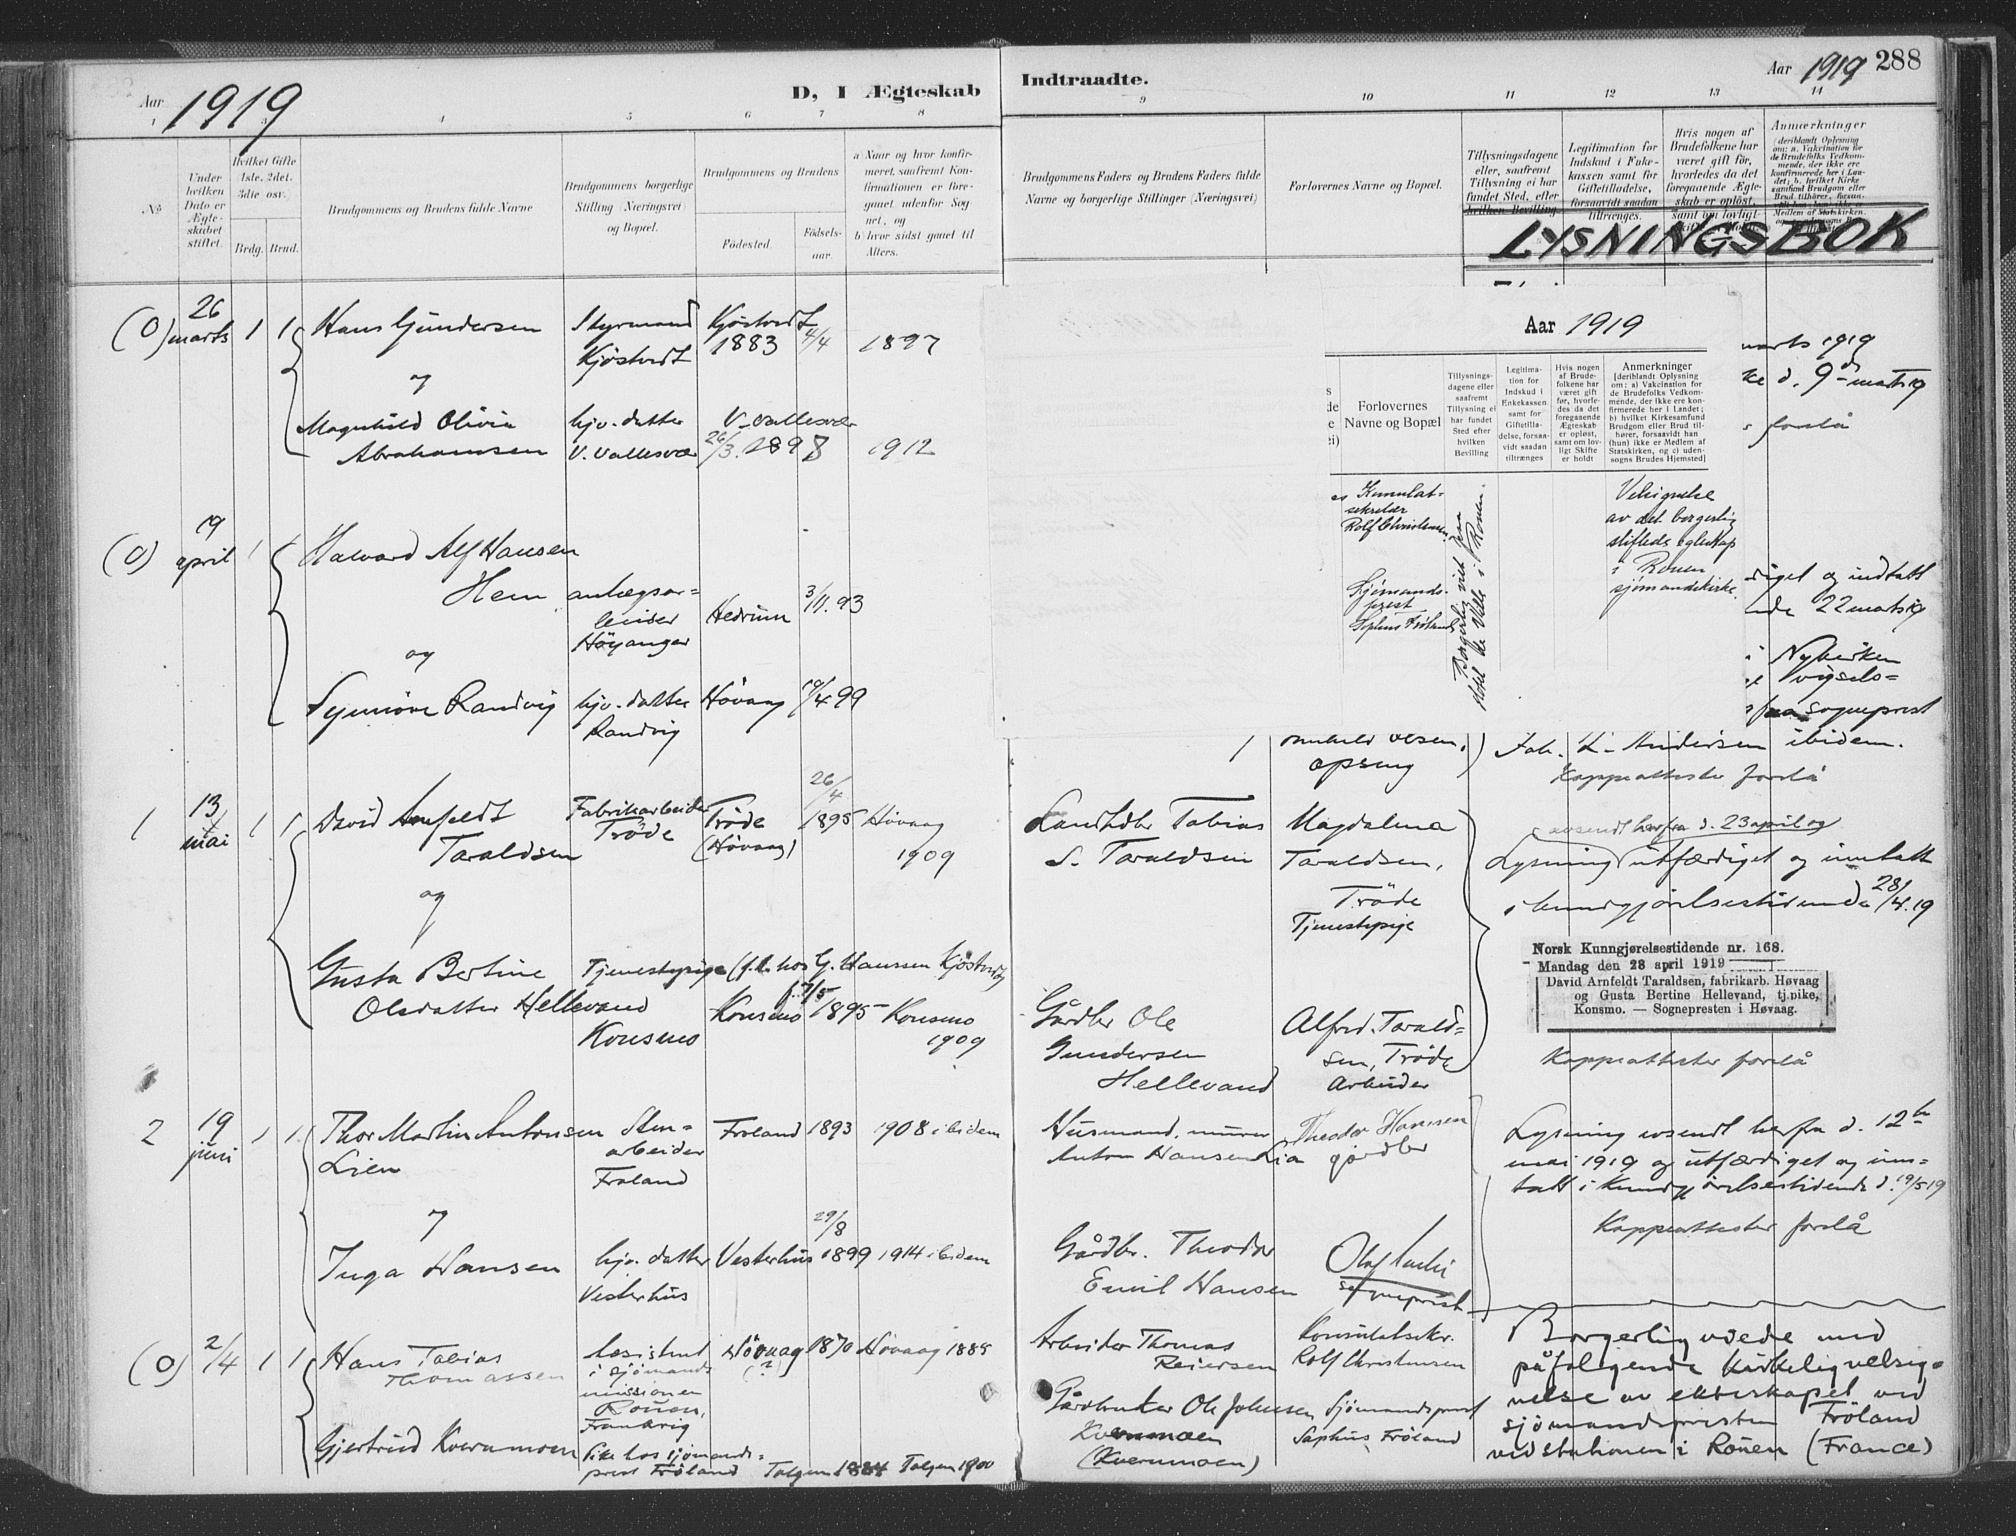 Aar 1919
D, I Ægteskab Indtraadte.
Aar 1919 288
1 3 4 5 6 7 8 9 10 11 12 13 14
No.
Under hvilken Dato er Ægteskabet stiftet.
Hvilket Gifte 1ste, 2det, 3die osv.
Brdg. Brud.
Brudgommens og Brudens fulde Navne
Brudgommens borgerlige Stilling (Næringsvei) og Bopæl.
Brudgommens og Brudens
Fødested.
Fødselsaar.
a) Naar og hvor konfirmeret, saafremt Konfirmationen er foregaaet udenfor Sognet, og
b) hvor sidst gaaet til Alters.
Brudgommens Faders og Brudens Faders fulde Navne og borgerlige Stillinger (Næringsvei)
Forlovernes Navne og Bopæl.
Tillysningsdagene eller, saafremt Tillysning ei har fundet Sted, efter hvilken Bevilling
Legitimation for Indskud i Enkekassen samt for Giftetilladelse, forsaavidt saadan tiltrænges.
Hvis nogen af Brudefolkene har været gift før, hvorledes da det foregaaende Ægteskab er opløst, samt om lovligt Skifte
Anmærkninger
(deriblandt Oplysning om: a. Vakcination for de Brudefolks Vedkommende, der ikke ere konfirmerede her i Landet; b. hvilket Kirkesamfund Brudgom eller Brud tilhører,
LYSNINGSBOK
(0) 26 marts 1 1 Hans Gundersen Styrmand Kjöstvedt Kjöstvedt 1883 4/4 1897
og
Magnhild Olivia Abrahamsen hjv. datter V. Vallesvær V. Vallesvær 26/3. 1898 1912
Aar 1919
Forlovernes Navne og Bopæl
Tillysningsdagene eller saafremt Tillysning ei har fundet Sted efter hvilken Bevilling
Legitimation for Indskud i Enkekassen samt for Giftetilladelse, forsaavidt saadan tiltrænges
Hvis nogen af Brudefolkene har været gift før, hvorledes da det foregaaende Ægteskab er opløst, samt om lovligt Skifte er holdt
Anmerkninger
[deriblandt Oplysning om: a) Vakcination for de Brudefolks Vedkommende, der ikke ere konfirmerede her i Landet; b) hvilket Kirkesamfund Brudgom eller Brud tilhører, forsaavidt han (hun) ikke er Medlem af Statskirken, og c) udensogns Brudes Hjemsted]
Konsulatsekretær Rolf Christensen
Sjømandsprest Sophus Fröland
Borgerlig viet paa Hotel de Ville i Rouen.
Velsignelse
av det borgerlig
stiftede egteskap
i Rouen
sjømandskirke.
marts 1919
d. 9de marts 19
forslå
og indtatt
22 marts 19
i Nykirken
vigsels=
fra sogneprest
Joh. L. Andersen ibidem.
Kopperattester forslå
(0) 19 april 1 1 Halvard Alf Hansen Hem anlægsarbeider Höyanger Hedrum 3/11. 93
og
Synnöve Randvig hjv. datter Randvig Høvaag 19/4 99
Olsen, Opsung
1 13 mai 1 1 David Arnfeldt Taraldsen Fabrikarbeider Tröde Tröde (Høvaag) 26/4 1895 Høvaag 1909
Landhdlr Tobias S. Taraldsen
Magdalena Taraldsen, Tröde Tjenestepige
avsendt herfra d. 23 april og
Lysning utfærdiget og inntatt
i kundgjörelsestidende 28/4. 19
og
Gusta Bertine Olsdatter Hellevand Tjenestepige (f.t. hos G. Hanssen Kjöstvedt) Konsmo Konsmo f. 7/5 1895 Konsmo 1909
Gårdbr Ole Gundersen Hellevand
Alfred Taraldsen, Tröde Arbeider
Norsk Kunngjørelsestidende nr. 168.
Mandag den 28 april 1919
David Arnfeldt Taraldsen, fabrikarb. Høvaag
og Gusta Bertine Hellevand, tj.pike,
Konsmo. — Sognepresten i Høvaag.
Kopperattester forslå
2 19 juni 1 1 Thor Martin Antonsen Lien Stenarbeider Froland Froland 1893 1908 ibidem
Husmand, murer Anton Hansen Lia
Theodor Hansen gårdbr
Lysning avsendt herfra d. 12te
mai 1919 og utfærdiget og inn=
tatt i Kundgjörelsestidende d. 19/5 19
Kopperattester forslå
og
Inga Hansen hjv. datter Vesterhus Vesterhus 29/8 1899 1914 ibidem
Gårdbr. Theodor Emil Hansen
Olaf
sogneprest
(0) 2/4 1 1 Hans Tobias Thomassen assistent i sjömandsmissionen Rouen, Frankrig Hövaag (?) 1870 Høvaag 1885
Arbeider Thomas Reiersen
Konsulatsekr. Rolf Christensen
Borgerlig viede med
påfölgende kirkelig velsig=
nelse av ekteskapet ved
sjömandspresten Fröland
ved stationen i Rouen (France)
Gjertrud Kvernmoen Pike hos sjömandsprest Fröland Tolgen 1884 Tolgen 1900
Gårdbruker Ole Johnsen Kvernmoen (Kvernmoen)
Sjömandsprest Sophus Fröland